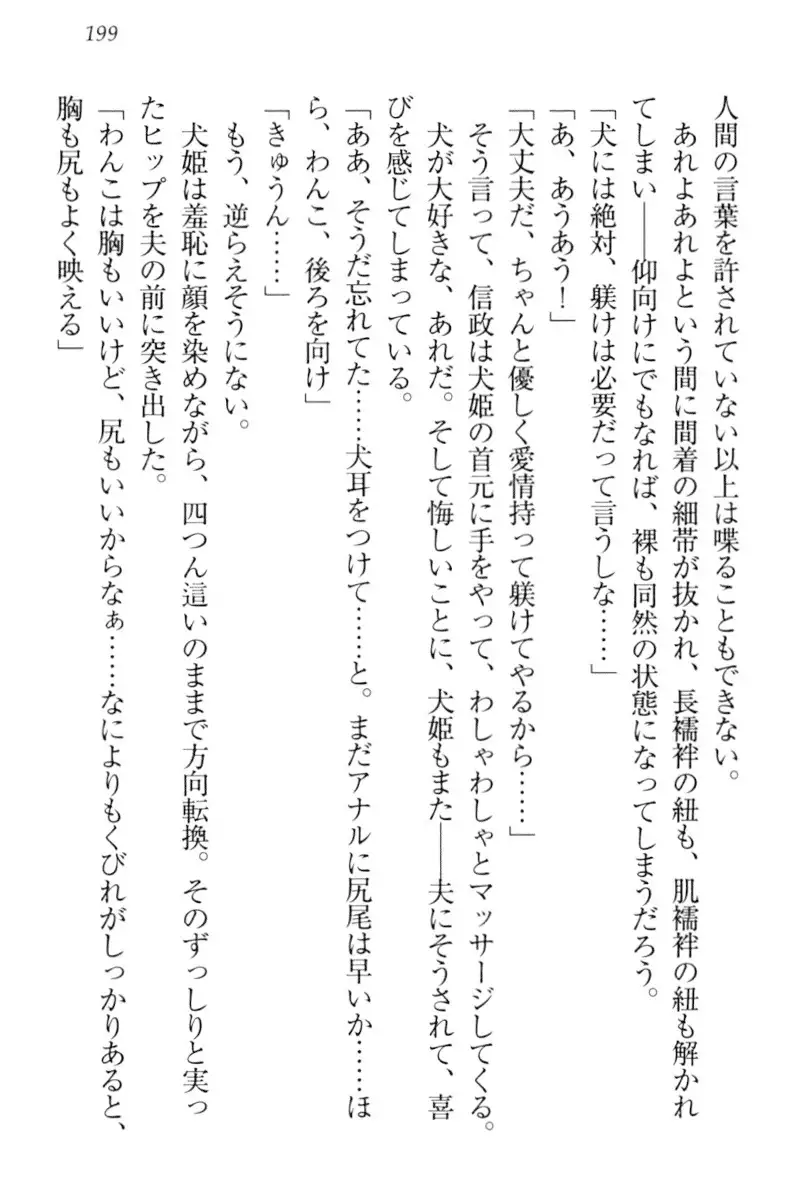 199
人間の言葉を許されていない以上は喋ることもできない。
あれよあれよという間に間着の細帯が抜かれ、長襦袢の紐も、肌襦袢の紐も解かれ
てしまい――仰向けにでもなれば、裸も同然の状態になってしまうだろう。
「犬には絶対、躾けは必要だって言うしな……」
「あ、あうあう！」
「大丈夫だ、ちゃんと優しく愛情持って躾けてやるから……」
そう言って、信政は犬姫の首元に手をやって、わしゃわしゃとマッサージしてくる。
犬が大好きな、あれだ。そして悔しいことに、犬姫もまた――夫にそうされて、喜
びを感じてしまっている。
「ああ、そうだ忘れてた……犬耳をつけて……と。まだアナルに尻尾は早いか……ほ
ら、わんこ、後ろを向け」
「きゅうん……」
もう、逆らえそうにない。
犬姫は羞恥に顔を染めながら、四つん這いのままで方向転換。そのずっしりと実っ
たヒップを夫の前に突き出した。
「わんこは胸もいいけど、尻もいいからなぁ……なによりもくびれがしっかりあると、
胸も尻もよく映える」